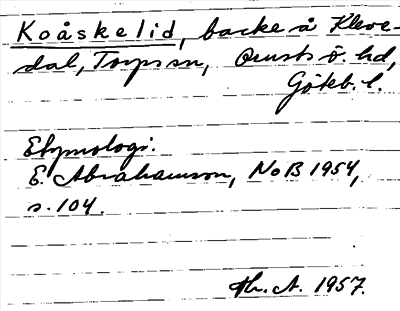 Koåskelid, backe å Kleve-
dal, Torps sn, Orusts ö. hd,
Göteb. l.
Etymologi:
E. Abrahamson, NoB 1954,
s. 104.
Th. A. 1957.